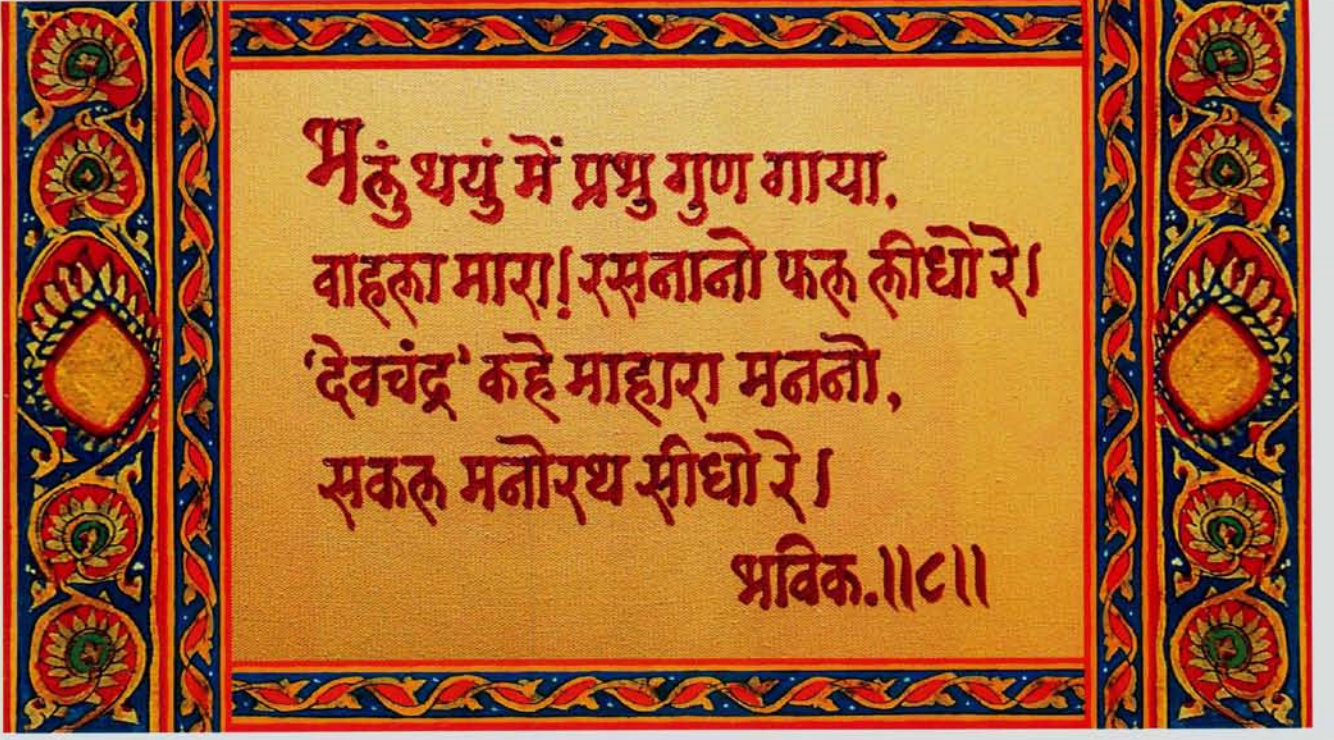 भलुं थयुं में प्रभु गुण गाया,
वाहला मारा! रसनानो फल लीधो रे।
'देवचंद्र' कहे माहारा मननो,
सकल मनोरथ सीधो रे।
भविक.॥८॥